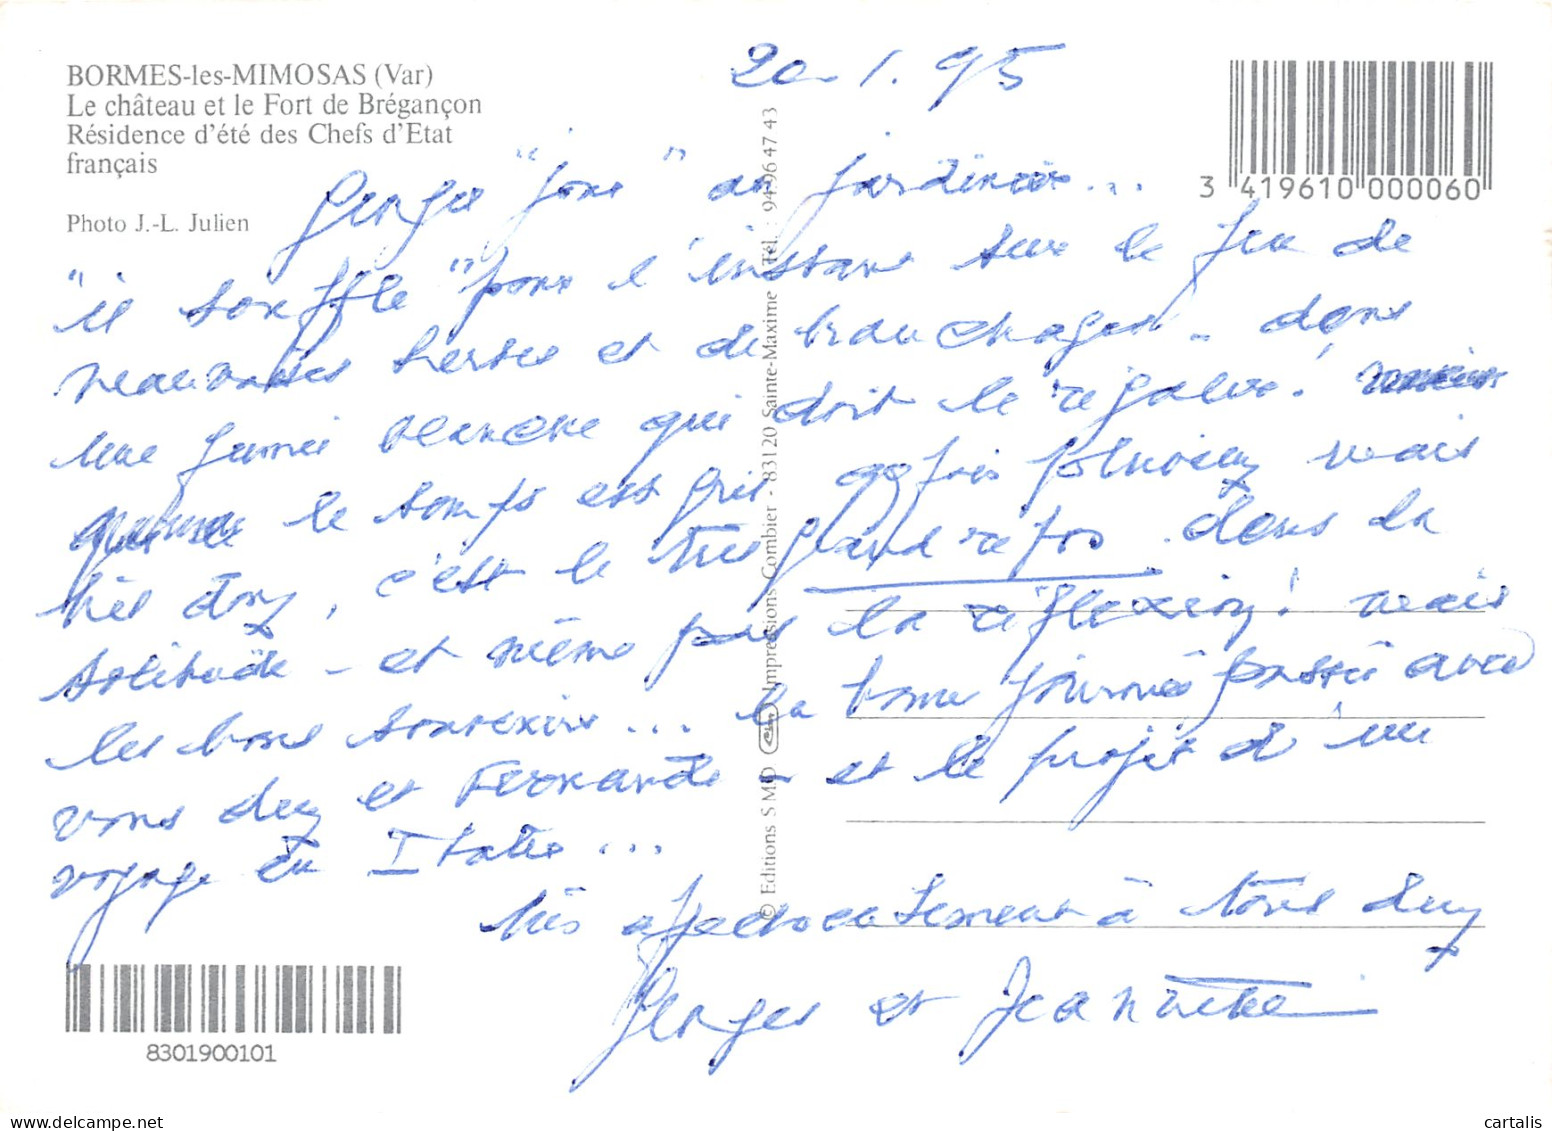 BORMES-les-MIMOSAS (Var)
Le château et le Fort de Brégançon
Résidence d'été des Chefs d'Etat
français
Photo J.-L. Julien
20.1.95
3 419610 000060
Georges "joue" au jardinier...
"il souffle" pour l'instant sur le feu de
mauvaises herbes et de branchages - dans
une fumée blanche qui doit le régaler!
le temps est gris qqfois pluvieux mais
très doux, c'est le très grand repos. dans la
solitude - et même pas la réflexion! mais
les bons souvenirs... la bonne journée passée avec
vous deux et Fernande - et le projet d'un
voyage en Italie...
très affectueusement à tous deux
Georges et Jeannette
© Editions SMD Impressions Combier - 83120 Sainte-Maxime Tél. : 94 96 47 43
8301900101
cartalis